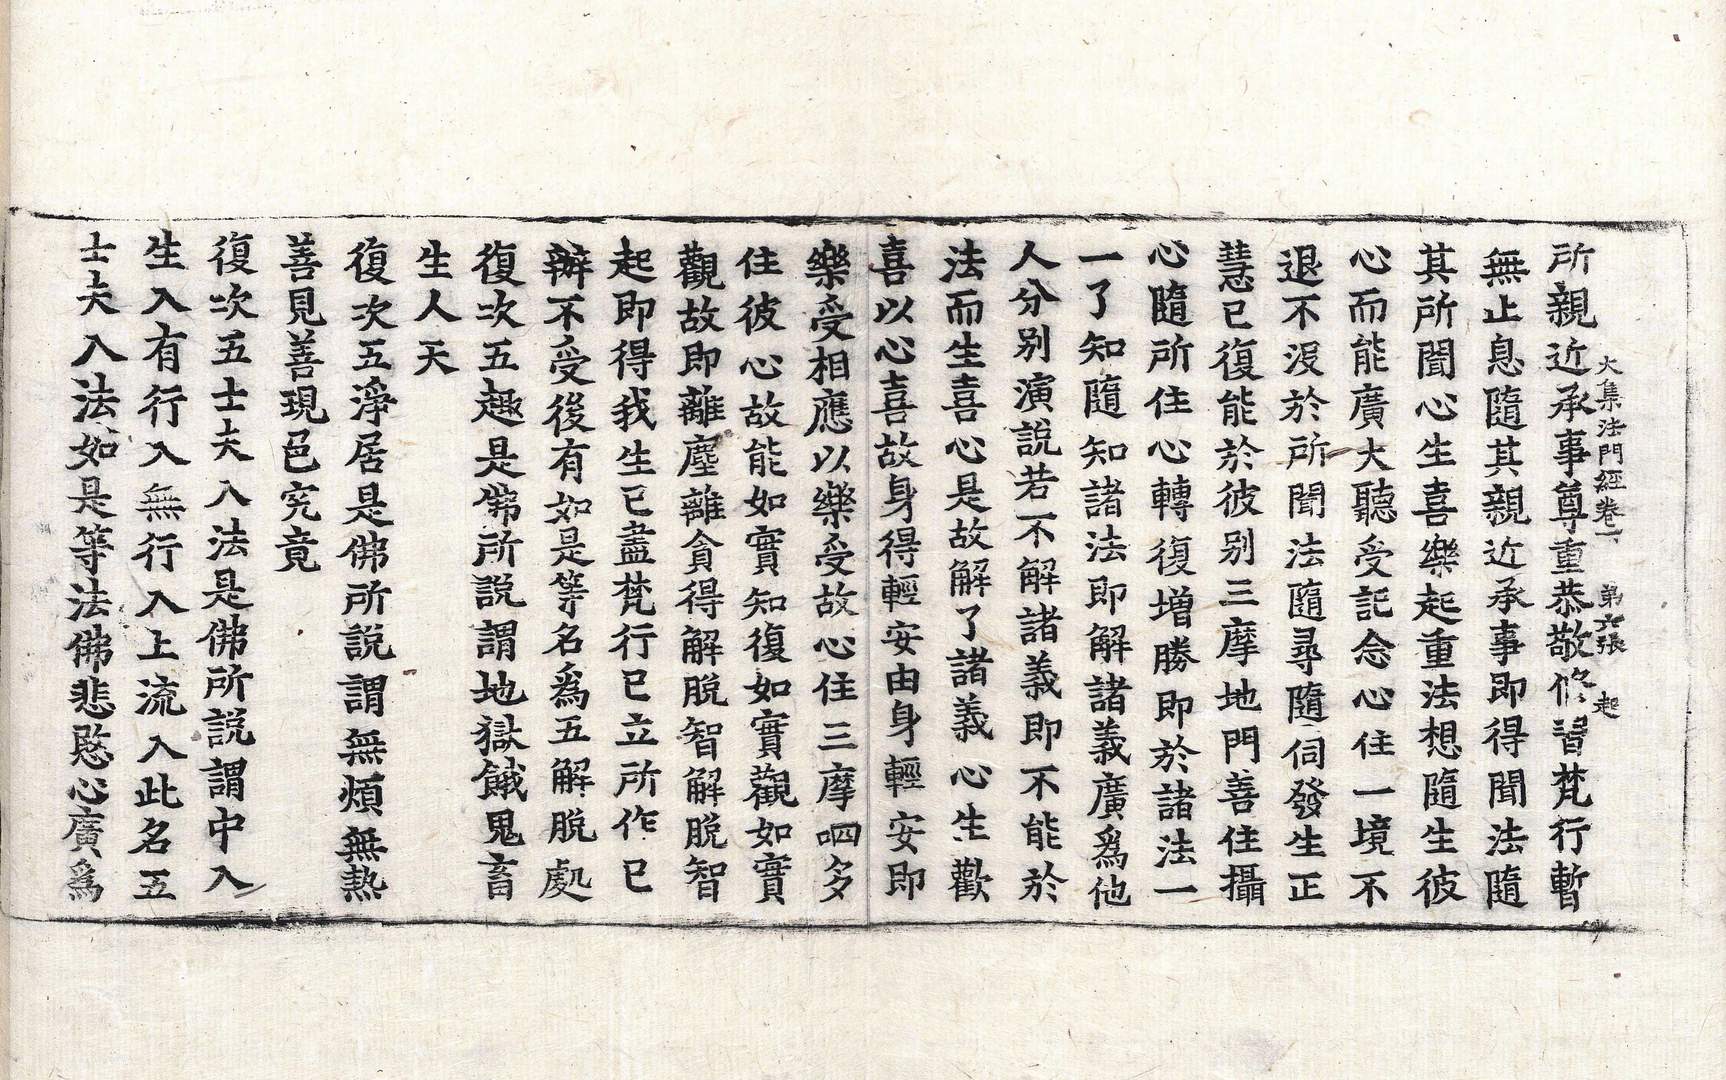 大集法門經卷下 第六張 起
所親近承事尊重恭敬修習梵行暫
無止息隨其親近承事即得聞法隨
其所聞心生喜樂起重法想隨生彼
心而能廣大聽受記念心住一境不
退不沒於所聞法隨尋隨伺發生正
慧已復能於彼別三摩地門善住攝
心隨所住心轉復增勝即於諸法一
一了知隨知諸法即解諸義廣為他
人分別演說若不解諸義即不能於
法而生喜心是故解了諸義心生歡
喜以心喜故身得輕安由身輕安即
樂受相應以樂受故心住三摩呬多
住彼心故能如實知復如實觀如實
觀故即離塵離貪得解脫智解脫智
起即得我生已盡梵行已立所作已
辦不受後有如是等名為五解脫處
復次五趣是佛所說謂地獄餓鬼畜
生人天
復次五淨居是佛所說謂無煩無熱
善見善現色究竟
復次五士夫入法是佛所說謂中入
生入有行入無行入上流入此名五
士夫入法如是等法佛悲愍心廣為